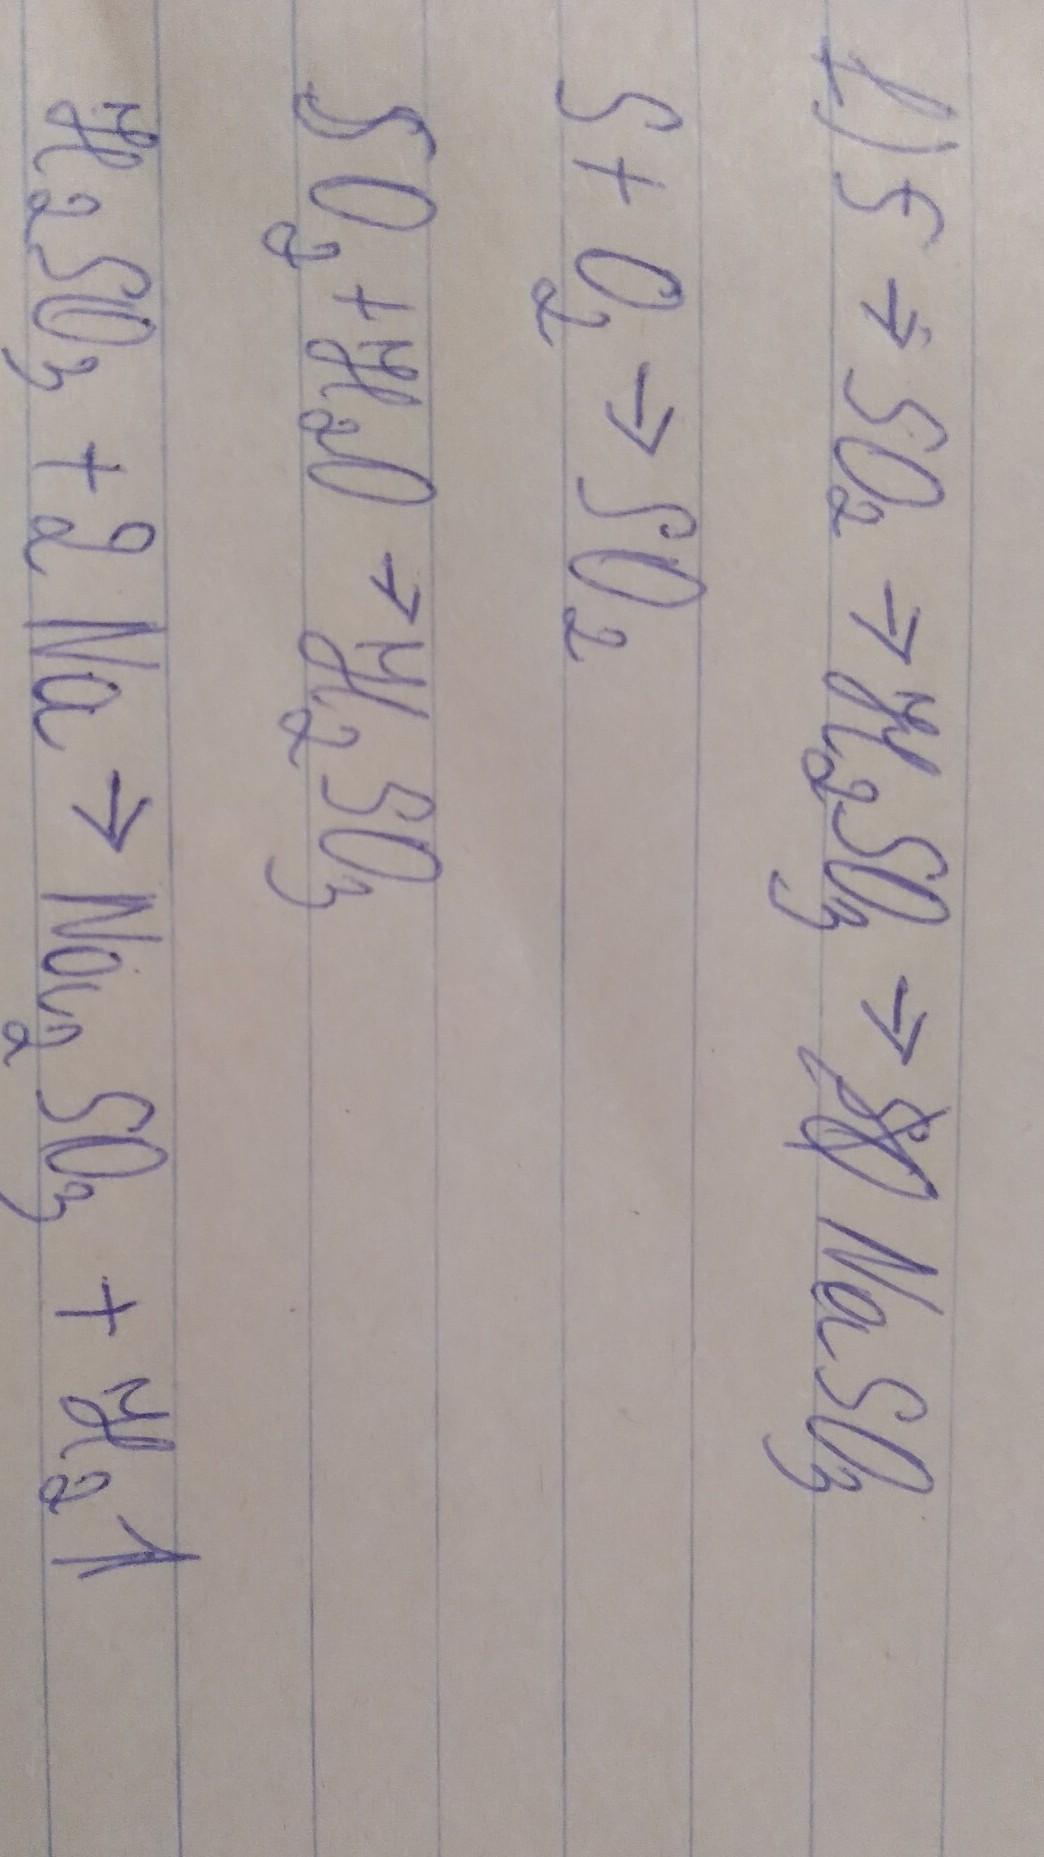 1) S → SO₂ → H₂SO₃ → NaSO₃
S + O₂ → SO₂
SO₂ + H₂O → H₂SO₃
H₂SO₃ + 2Na → Na₂SO₃ + H₂↑